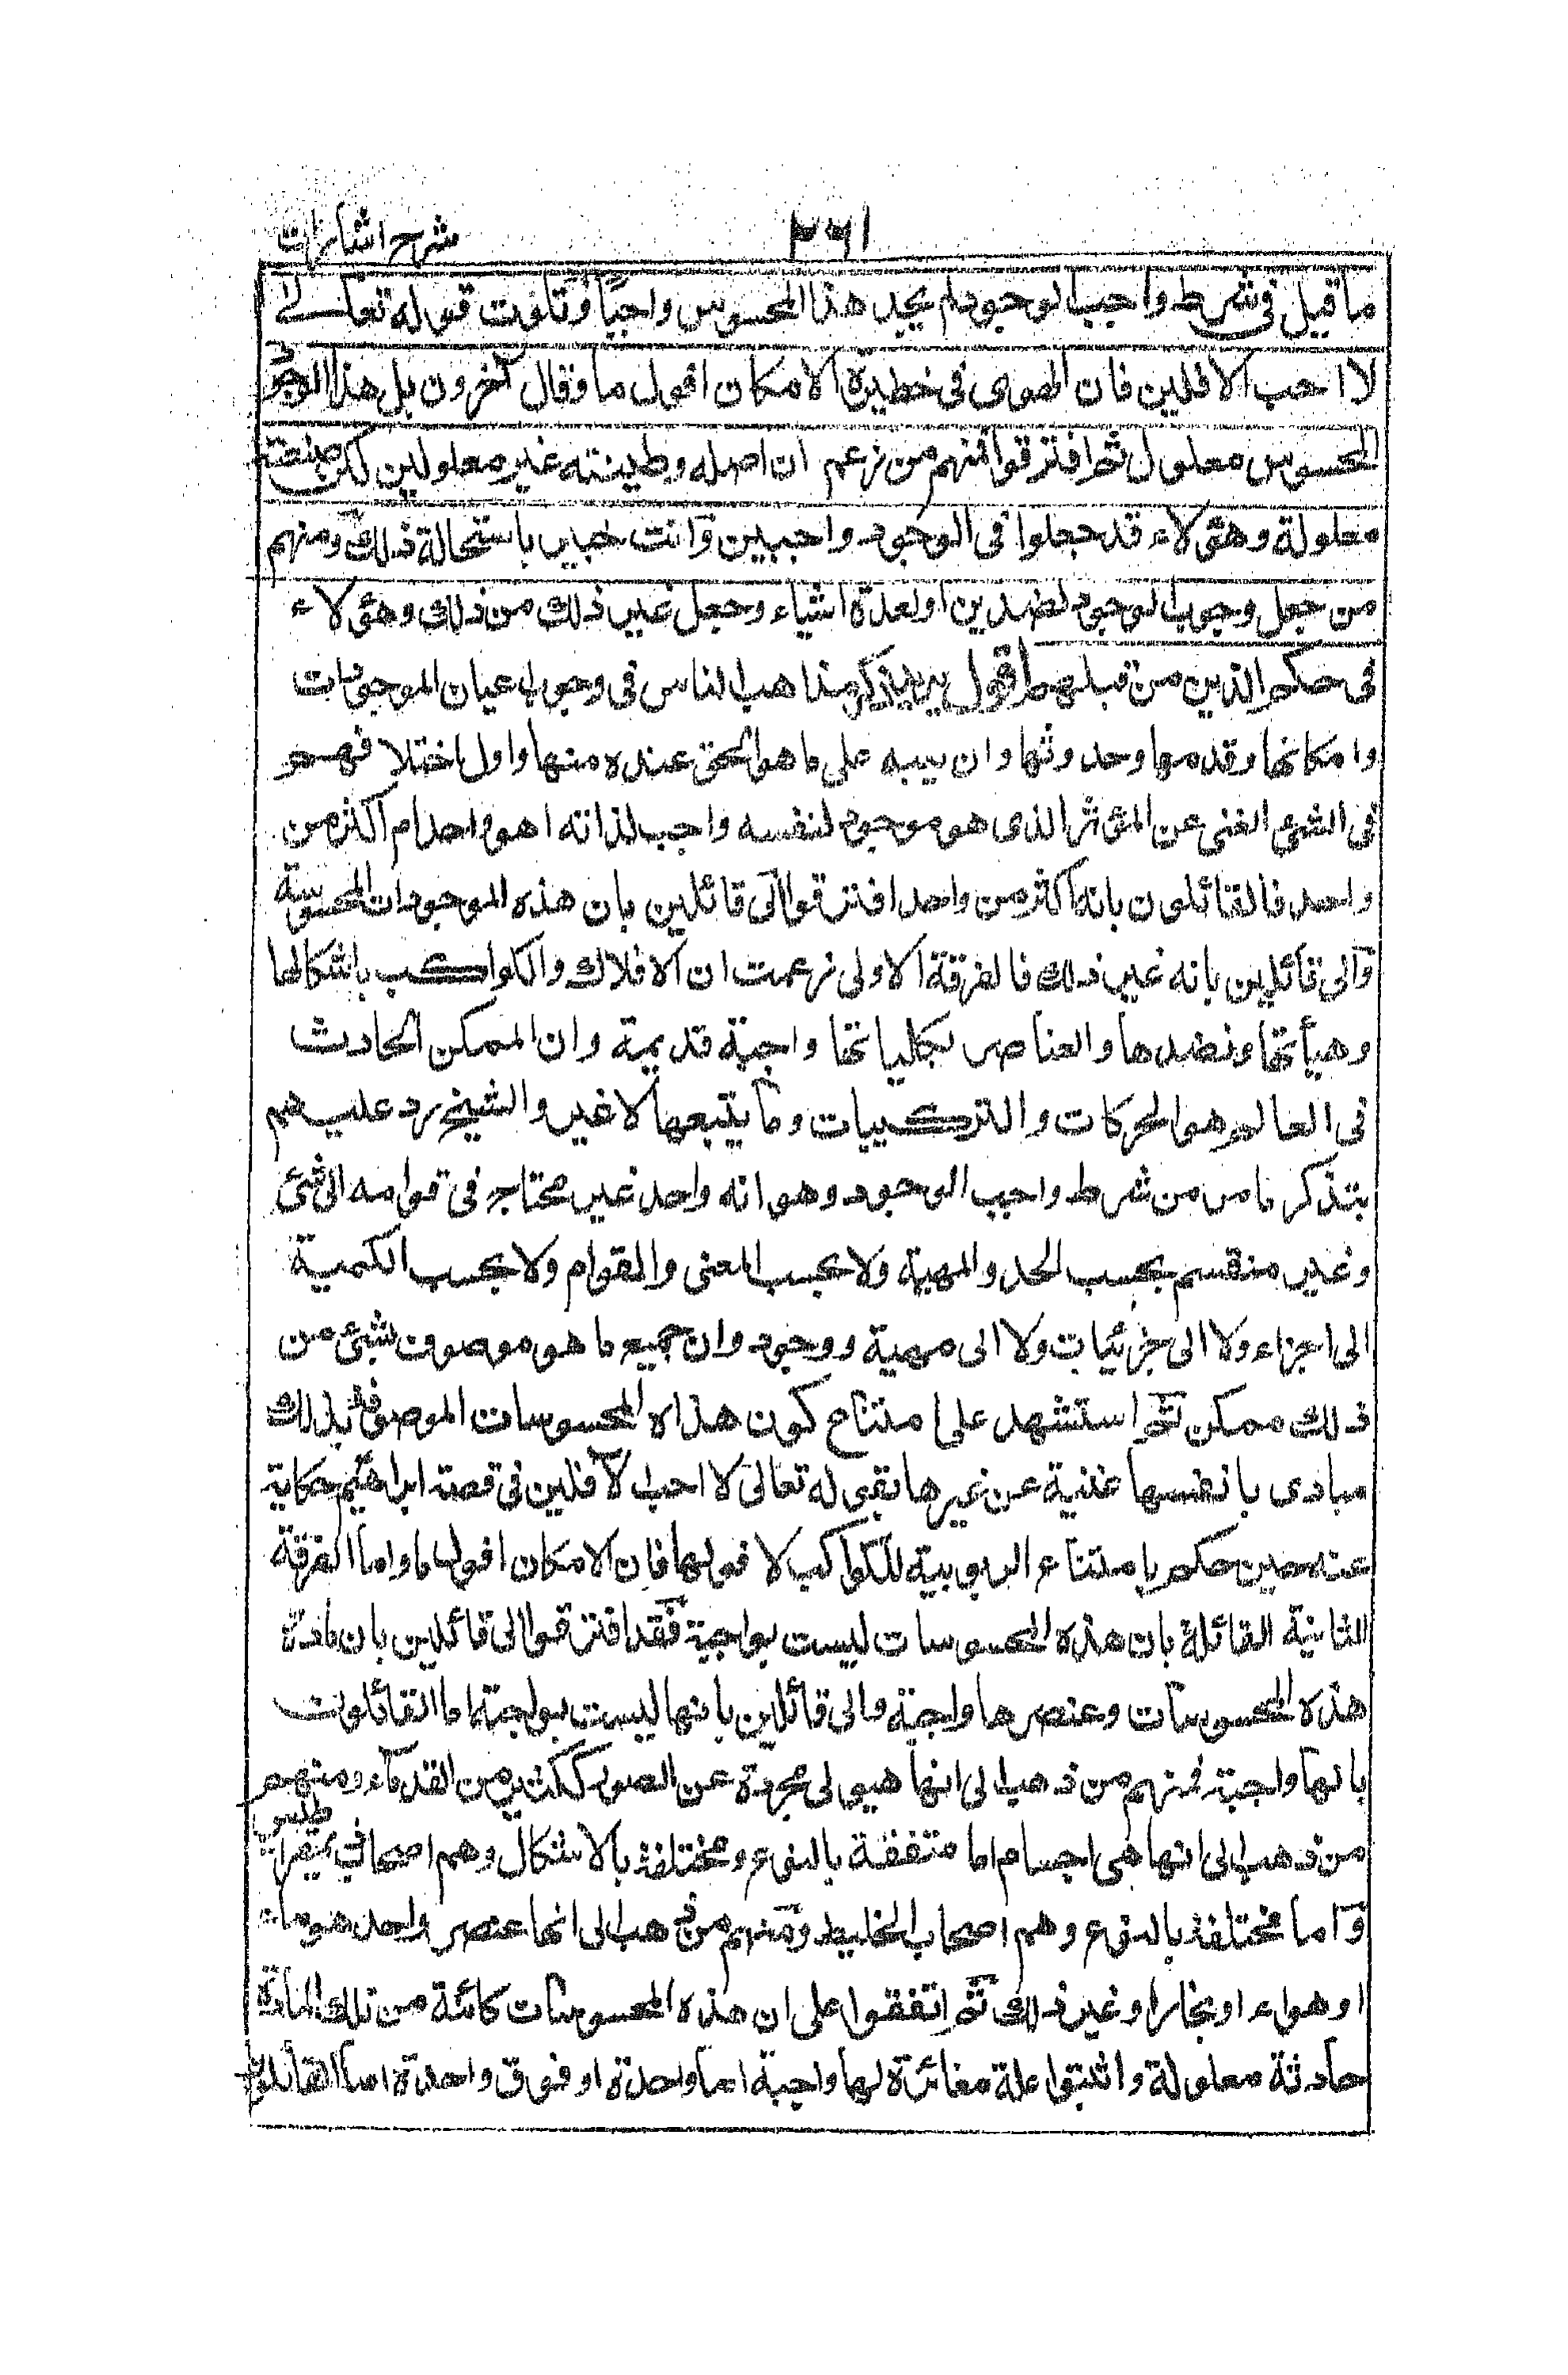 شرح اشارات
ما قيل فى شرط واجب الوجود لم يجد هذا المحسوس واجبا وتلوت قوله تعالى
لا احب الافلين فان الهوى فى حظيرة الامكان افول ما وقال آخرون بل هذا الوجود
المحسوس معلول ثم افترقوا فمنهم من زعم ان اصله وطينته غير معلولين لكن صنعته
معلولة وهؤلاء قد جعلوا فى الوجود واجبين وانت خبير باستحالة ذلك ومنهم
من جعل وجوب الوجود لضدين او لعدة اشياء وجعل غير ذلك من ذلك وهؤلاء
فى حكم الذين من قبلهم اقول يريد ذكر مذاهب الناس فى وجوب اعيان الموجودات
وامكانها وقدمها وحدوثها وان ينبه على ما هو الحق عنده منها واول اختلافهم هو
فى الشئ الغنى عن المؤثر الذى هو موجود لنفسه واجب لذاته اهو واحد ام اكثر من
واحد فالقائلون بانه اكثر من واحد افترقوا الى قائلين بان هذه الموجودات المحسوسة
والى قائلين بانه غير ذلك فالفرقة الاولى زعمت ان الافلاك والكواكب باشكالها
وهيأتها ونضدها والعناصر بكلياتها واجبة قديمة وان الممكن الحادث
فى العالم هو الحركات والتركيبات وما يتبعها لا غير والشيخ رد عليهم
بتذكر ما مر من شرط واجب الوجود وهو انه واحد غير محتاج فى قوامه الى شئ
وغير منقسم بحسب الحد والمهية ولا بحسب المعنى والقوام ولا بحسب الكمية
الى اجزاء ولا الى جزئيات ولا الى مهية ووجود وان جميع ما هو موصوف بشئ من
ذلك ممكن ثم استشهد على امتناع كون هذه المحسوسات الموصوفة بذلك
مبادى بانفسها غنية عن غيرها بقوله تعالى لا احب الآفلين فى قصة ابراهيم حكاية
عنه حين حكم بامتناع الربوبية للكواكب لافولها فان الامكان افول ما واما الفرقة
الثانية القائلة بان هذه المحسوسات ليست بواجبة فقد افترقوا الى قائلين بان مادة
هذه المحسوسات وعنصرها واجبة والى قائلين بانها ليست بواجبة اما القائلون
بانها واجبة فمنهم من ذهب الى انها هيولى مجردة عن الصور ككثير من القدماء ومنهم
من ذهب الى انها هى اجسام اما متفقة بالنوع ومختلفة بالاشكال وهم اصحاب ذيمقراطيس
واما مختلفة بالنوع وهم اصحاب الخليط ومنهم من ذهب الى انها عنصر واحد هو ماء
او هواء او بخار او غير ذلك ثم اتفقوا على ان هذه المحسوسات كائنة من تلك المادة
حادثة معلولة واثبتوا علة مغائرة لها واجبة اما واحدة او فوق واحدة اما القائلون